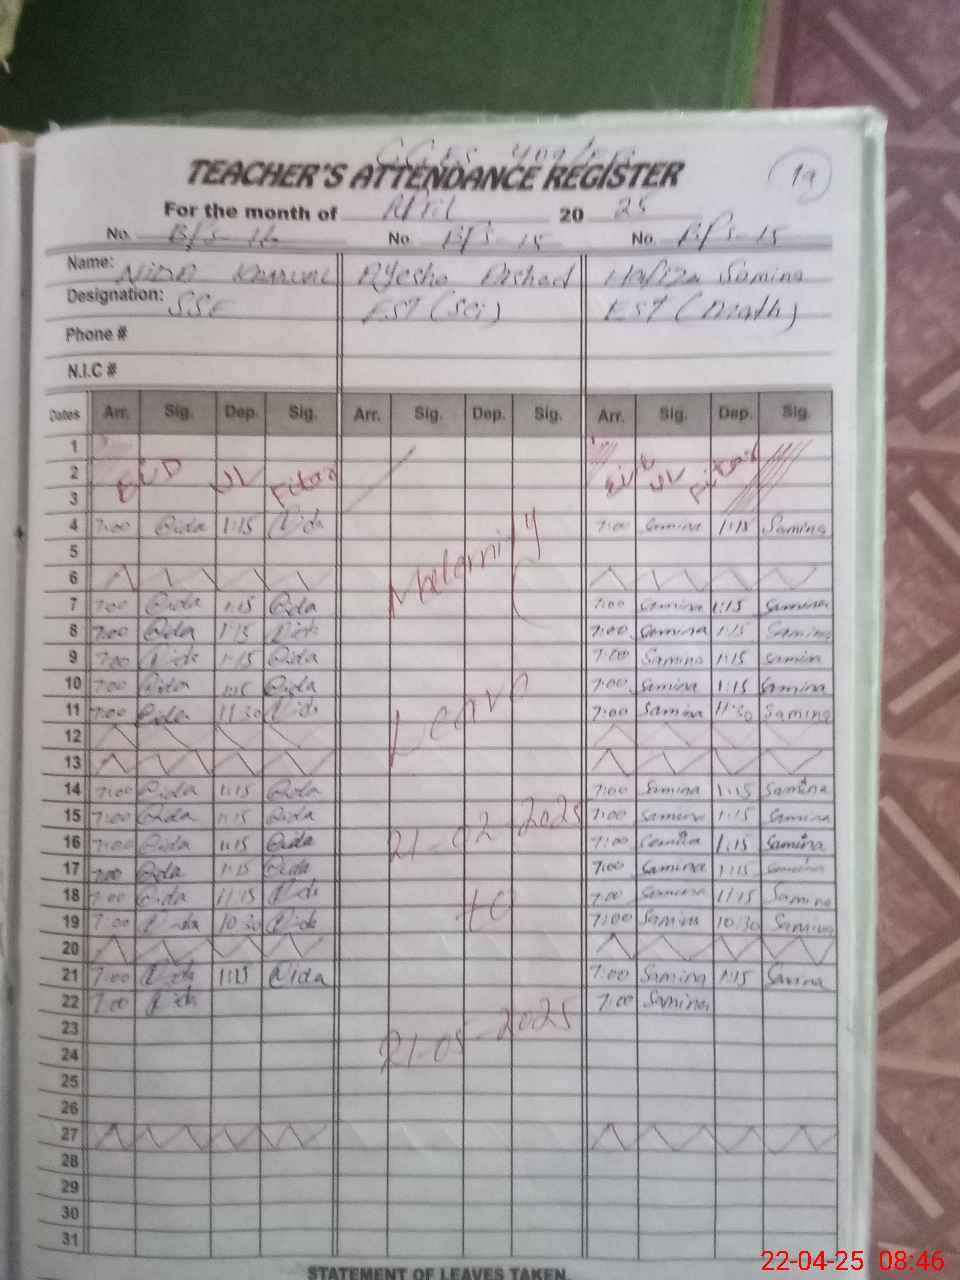 TEACHER'S ATTENDANCE REGISTER
19
For the month of April 20 25
No. BPS-16 No BPS-15 No. BPS-15
Name: NIDA Ayesha Arshad Hafiza Samina
Designation: SSE EST (Sci) EST (Math)
Phone #
N.I.C #
Dates Arr. Sig. Dep. Sig. Arr. Sig. Dep. Sig. Arr. Sig. Dep. Sig.
1
2 EID UL Fitar Eid UL Fitar
3
4 7:00 Qida 1:15 Qida 7:00 Samina 1:15 Samina
5
Maternity
6
7 7:00 Qida 1:15 Qida 7:00 Samina 1:15 Samina
8 7:00 Qida 1:15 Qida 7:00 Samina 1:15 Samina
9 7:00 Qida 1:15 Qida 7:00 Samina 1:15 Samina
10 7:00 Qida 1:15 Qida 7:00 Samina 1:15 Samina
11 7:00 Qida 11:30 Qida 7:00 Samina 11:30 Samina
Leave
12
13
14 7:00 Qida 1:15 Qida 7:00 Samina 1:15 Samina
15 7:00 Qida 1:15 Qida 21-02-2025 7:00 Samina 1:15 Samina
16 7:00 Qida 1:15 Qida 7:00 Samina 1:15 Samina
17 7:00 Qida 1:15 Qida 7:00 Samina 1:15 Samina
18 7:00 Qida 11:15 Qida to 7:00 Samina 11:15 Samina
19 7:00 Qida 10:30 Qida 7:00 Samina 10:30 Samina
20
21 7:00 Qida 1:15 Qida 7:00 Samina 1:15 Samina
22 7:00 Qida 7:00 Samina
23 21-05-2025
24
25
26
27
28
29
30
31
STATEMENT OF LEAVES TAKEN.
22-04-25 08:46